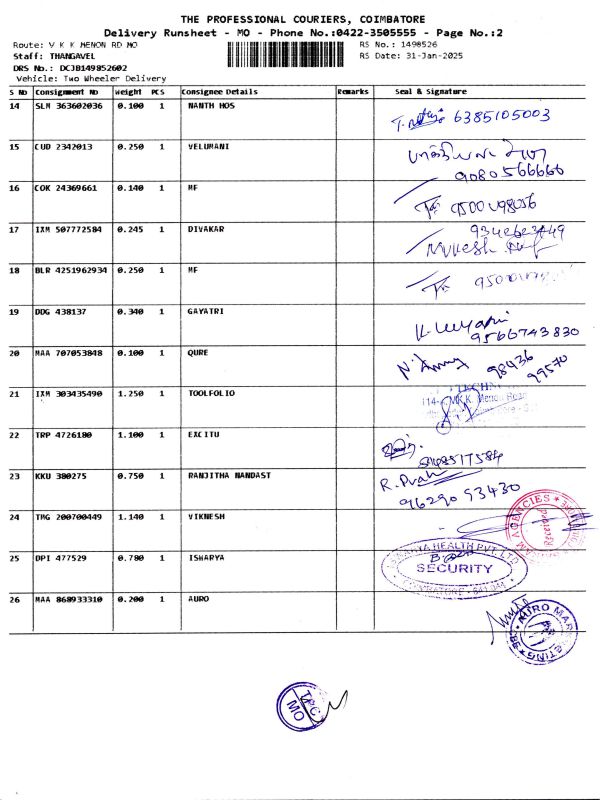 THE PROFESSIONAL COURIERS, COIMBATORE
Delivery Runsheet - MO - Phone No.:0422-3505555 - Page No.:2
Route: V K K MENON RD MO RS No.: 1498526
Staff: THANGAVEL RS Date: 31-Jan-2025
DRS No.: DCJB149852602
Vehicle: Two Wheeler Delivery
S No Consignment No Weight PCS Consignee Details Remarks Seal & Signature
14 SLM 363602036 0.100 1 NANTH HOS
6385105003
15 CUD 2342013 0.250 1 VELUMANI
9080566666
16 COK 24369661 0.140 1 MF
17 IXM 507772584 0.245 1 DIVAKAR
Mukesh
18 BLR 4251962934 0.250 1 MF
19 DDG 438137 0.340 1 GAYATRI
9566743830
20 MAA 707053848 0.100 1 QURE
98436
99570
21 IXM 303435490 1.250 1 TOOLFOLIO
Menon Road
22 TRP 4726180 1.100 1 EXCITU
23 KKU 380275 0.750 1 RANJITHA NANDAST
9629093430
24 TMG 200700449 1.140 1 VIKNESH
AGENCIES
25 DPI 477529 0.780 1 ISHARYA
HEALTH PVT. LTD
SECURITY
26 MAA 868933310 0.200 1 AURO
AURO MARKETING
TPC
MO